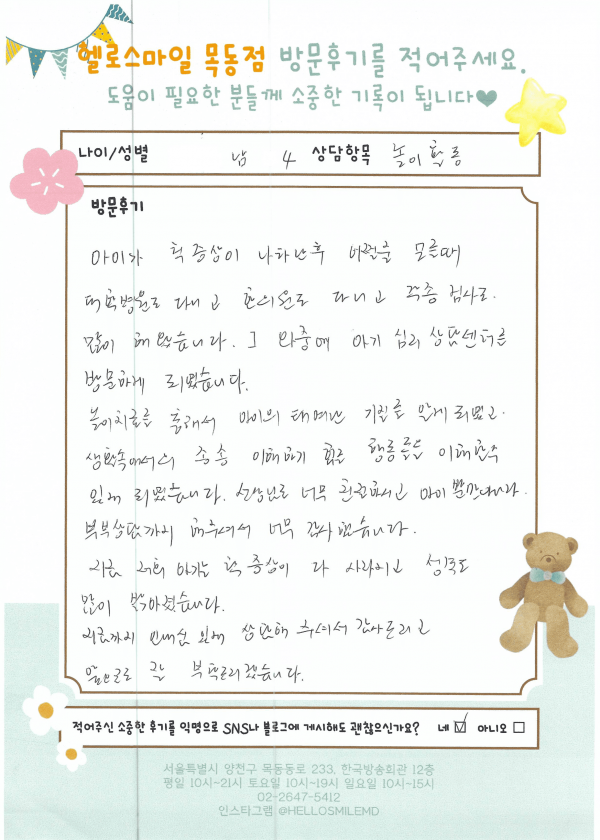 헬로스마일 목동점 방문후기를 적어주세요.
도움이 필요한 분들께 소중한 기록이 됩니다♥
나이/성별 남 4 상담항목 놀이활동
방문후기
아이가 틱 증상이 나타난후 어쩔줄 모를때
대학병원도 다니고 한의원도 다니고 각종 검사도
많이 해 봤습니다. 그 와중에 아기 심리 상담센터를
방문하게 되었습니다.
놀이치료를 통해서 아이의 태어난 기질을 알게 되었고
생활속에서의 종종 이해하기 힘든 행동들을 이해할수
있게 되었습니다. 선생님도 너무 친절하시고 아이 뿐만아니라
부부상담까지 해주셔서 너무 감사했습니다.
지금 저희 아가는 틱 증상이 다 사라지고 성격도
많이 밝아졌습니다.
지금까지 인내심 있게 상담해 주셔서 감사드리고
앞으로도 잘 부탁드리겠습니다.
적어주신 소중한 후기를 익명으로 SNS나 블로그에 게시해도 괜찮으신가요? 네 ☑ 아니오 □
서울특별시 양천구 목동동로 233, 한국방송회관 12층
평일 10시~21시 토요일 10시~19시 일요일 10시~15시
02-2647-5412
인스타그램 @HELLOSMILEMD